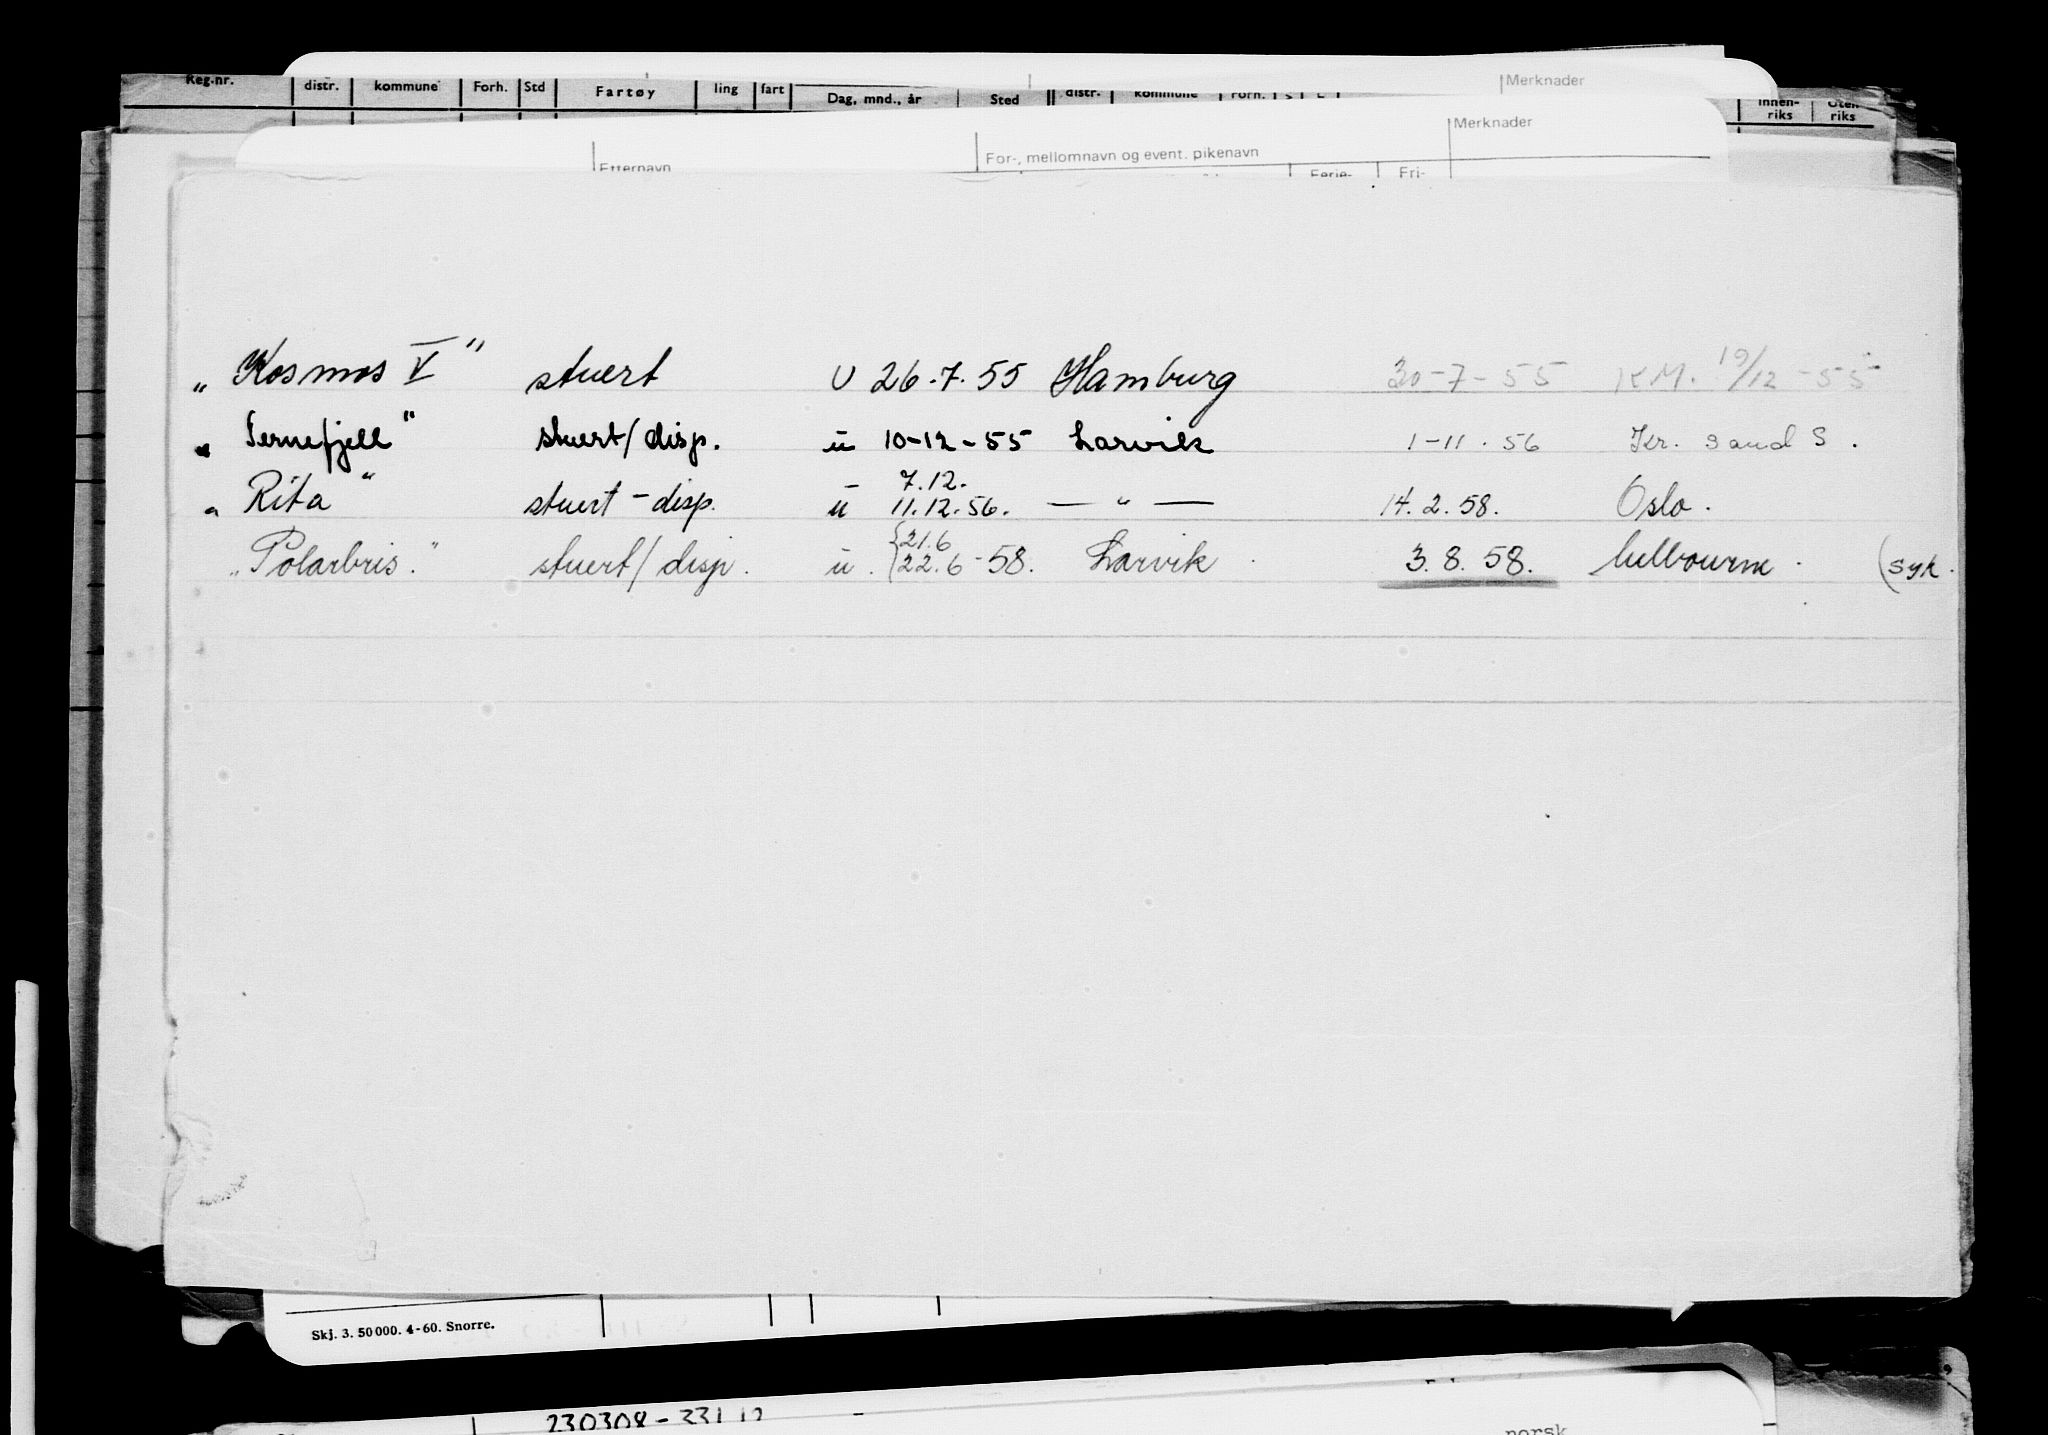 Reg.nr. distr. kommune Forh. Std Fartøy ling fart Dag, mnd., år Sted distr. kommune Forh. Merknader
Innen-riks Uten riks
Merknader
Etternavn For-, mellomnavn og event. pikenavn
Ferie- Fri-
„ Kosmos V " stuert U 26.7.55 Hamburg 30-7-55 KM. 19/12-55
„ Ternefjell " stuert/disp. u 10-12-55 Larvik 1-11.56 Kr. sand S.
7.12.
„ Rita " stuert-disp. u 11.12.56. — " — 14.2.58. Oslo.
21.6
„ Polarbris." stuert/disp. u. 22.6-58. Larvik 3.8.58. Melbourne. (syk.
Skj. 3. 50000. 4-60. Snorre.
230308-33112
norsk